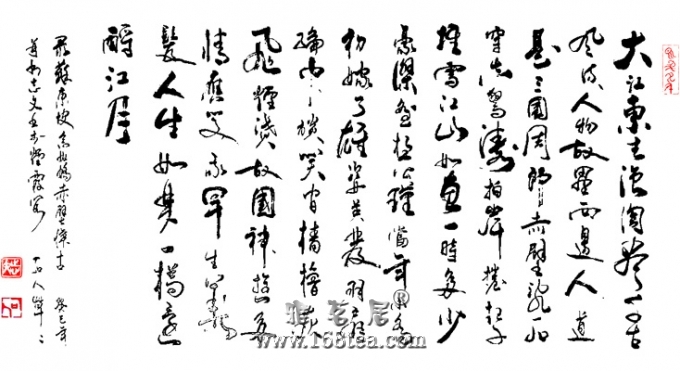 大江東去浪淘盡千古
風流人物故壘西邊人道
是三國周郎赤壁亂石
穿空驚濤拍岸捲起千
堆雪江山如畫一時多少
豪傑遥想公瑾當年小喬
初嫁了雄姿英發羽扇
綸巾談笑間檣櫓灰
飛煙滅故國神遊多
情應笑我早生華
髮人生如夢一樽還
酹江月
録蘇東坡念奴嬌赤壁懷古 癸巳年
雅茗居
www.168tea.com